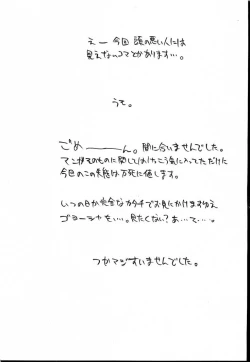 えー 今回 頭の悪い人には
見えないコマとかあります…。
うそ。
ごめーーーん。間に合いませんでした。
マンガそのものに関してはけっこう気に入ってただけに
今回のこの失態は万死に値します。
いつの日か完全なカタチでお見にかけますゆえ
ゴヨーシャを…。見たくない？あ…て…。
つかマジすいませんでした。